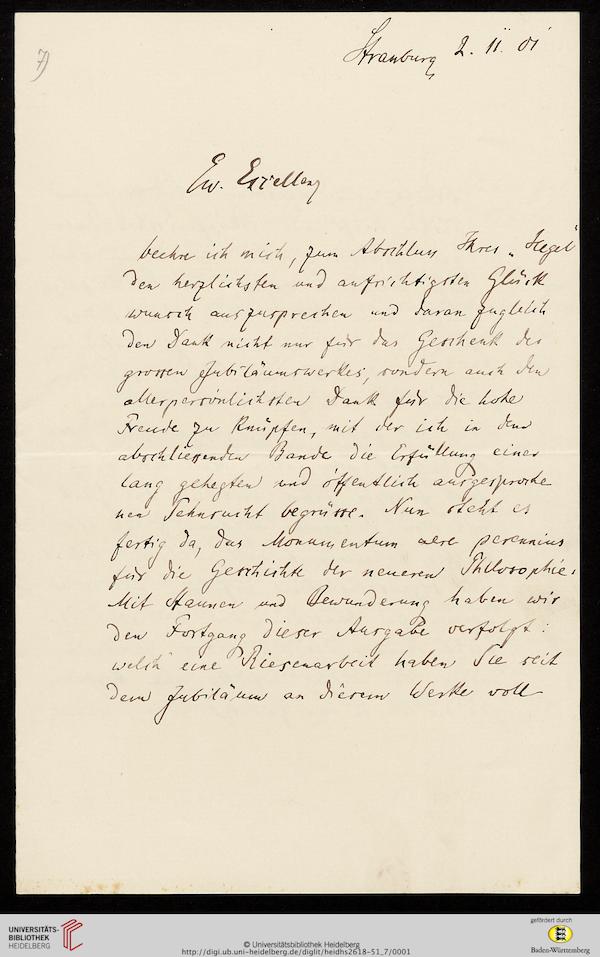 7)
Strassburg 2. 11. 01
Ew. Exzellenz
beehre ich mich, zum Abschluss Ihres „Hegel"
den herzlichsten und aufrichtigsten Glück
wunsch auszusprechen und daran zugleich
den Dank nicht nur für das Geschenk des
grossen Jubiläumswerkes, sondern auch den
allerpersönlichsten Dank für die hohe
Freude zu knüpfen, mit der ich in dem
abschliessenden Bande die Erfüllung einer
lang gehegten und öffentlich ausgesproche
nen Sehnsucht begrüsse. Nun steht es
fertig da, das Monumentum aere perennius
für die Geschichte der neueren Philosophie.
Mit Staunen und Bewunderung haben wir
den Fortgang dieser Ausgabe verfolgt:
welch eine Riesenarbeit haben Sie seit
dem Jubiläum an diesem Werke voll
UNIVERSITÄTS-
BIBLIOTHEK
HEIDELBERG
© Universitätsbibliothek Heidelberg
http://digi.ub.uni-heidelberg.de/diglit/heidhs2618-51_7/0001
gefördert durch
Baden-Württemberg